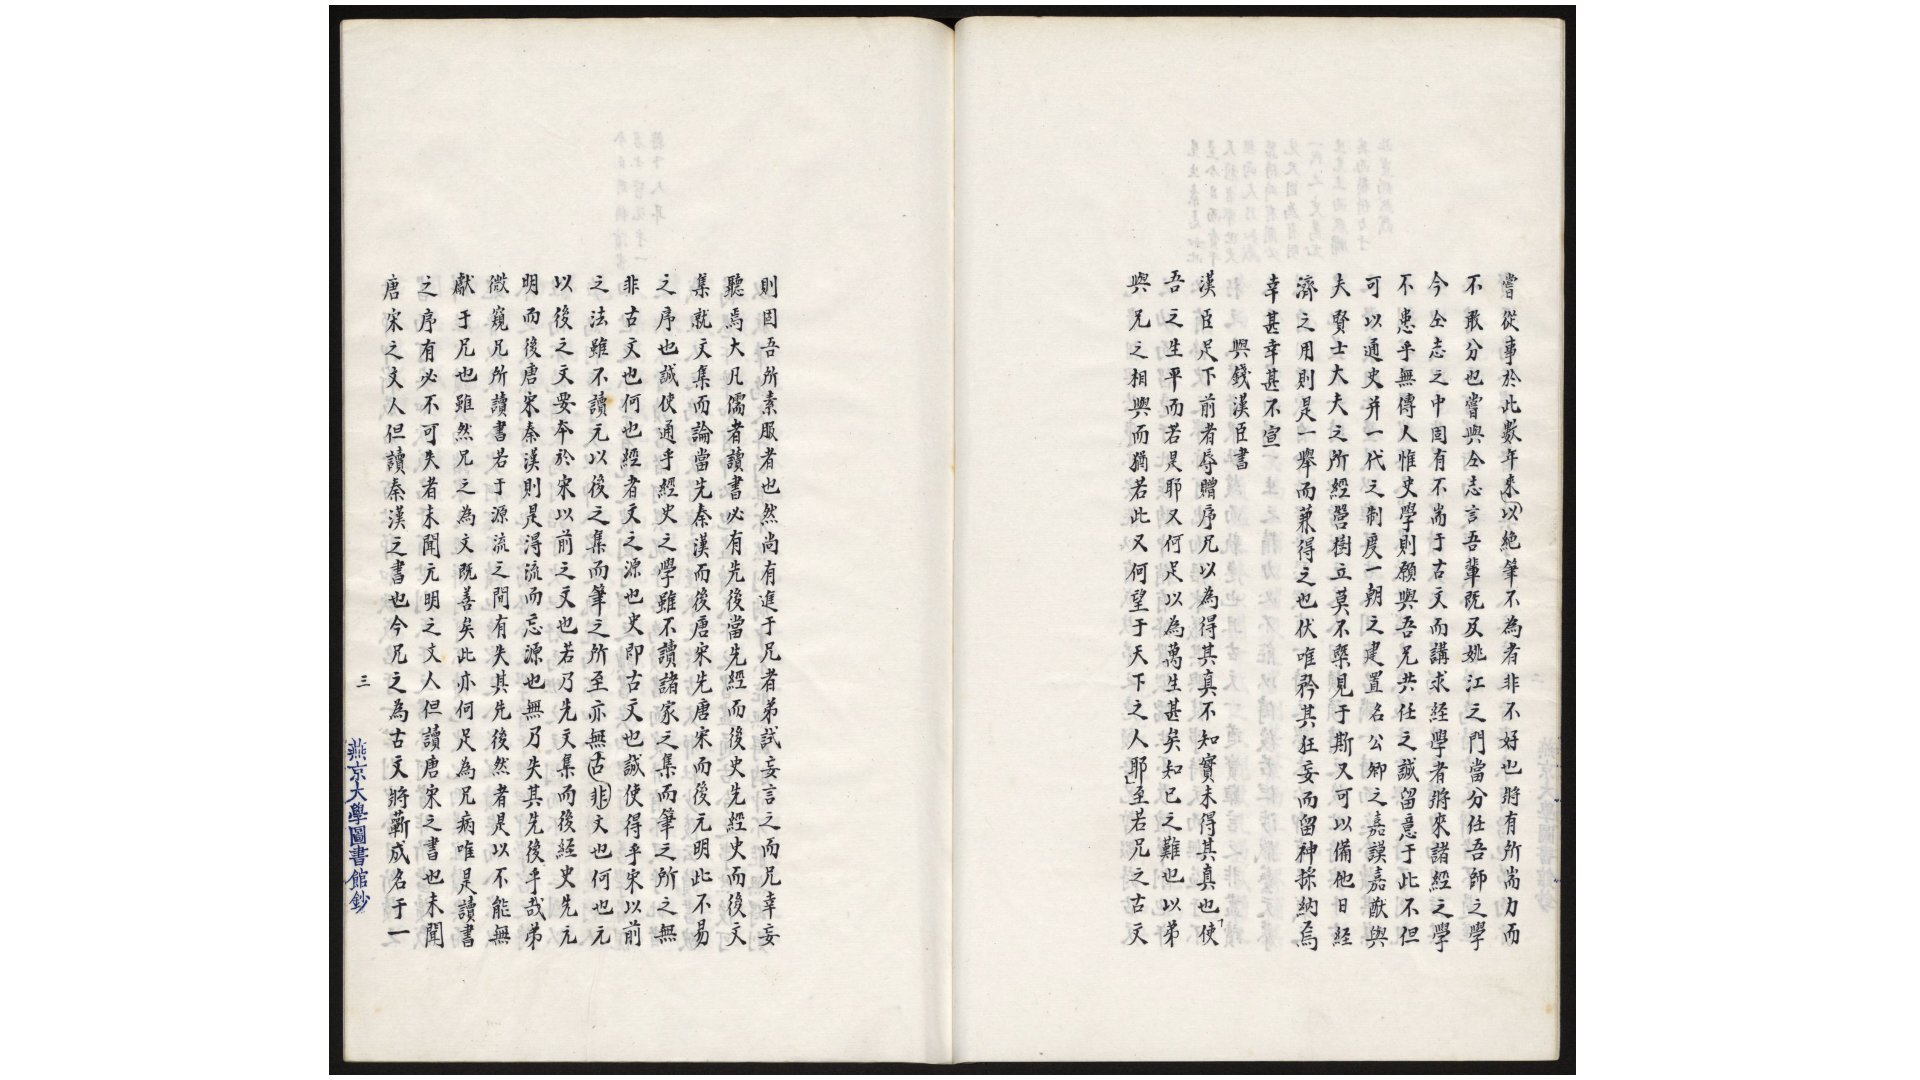 嘗從事於此數年來以絕筆不為者非不好也將有所耑力而
不敢分也嘗與仝志言吾輩既及姚江之門當分任吾師之學
今仝志之中固有不耑于古文而講求經學者將來諸經之學
不患乎無傳人惟史學則願與吾兄共任之誠留意于此不但
可以通史并一代之制度一朝之建置名公卿之嘉謨嘉猷與
夫賢士大夫之所經營樹立莫不槩見于斯又可以備他日經
濟之用則是一舉而兼得之也伏唯矜其狂妄而留神採納焉
幸甚幸甚不宣
與錢漢臣書
漢臣足下前者辱贈序兄以為得其真不知實未得其真也使
吾之生平而若是耶又何足以為萬生甚矣知已之難也以弟
與兄之相與而猶若此又何望于天下之人耶至若兄之古文
則固吾所素服者也然尚有進于兄者弟試妄言之而兄幸妄
聽焉大凡儒者讀書必有先後當先經而後史先經史而後文
集就文集而論當先秦漢而後唐宋先唐宋而後元明此不易
之序也誠使通乎經史之學雖不讀諸家之集而筆之所之無
非古文也何也經者文之源也史即古文也誠使得乎宋以前
之法雖不讀元以後之集而筆之所至亦無古非文也何也元
以後之文要夲於宋以前之文也若乃先文集而後經史先元
明而後唐宋秦漢則是淂流而忘源也無乃失其先後乎哉弟
微窺兄所讀書若于源流之間有失其先後然者是以不能無
獻于兄也雖然兄之為文既善矣此亦何足為兄病唯是讀書
之序有必不可失者未聞元明之文人但讀唐宋之書也未聞
唐宋之文人但讀秦漢之書也今兄之為古文將蘄成名于一
三
燕京大學圖書館鈔